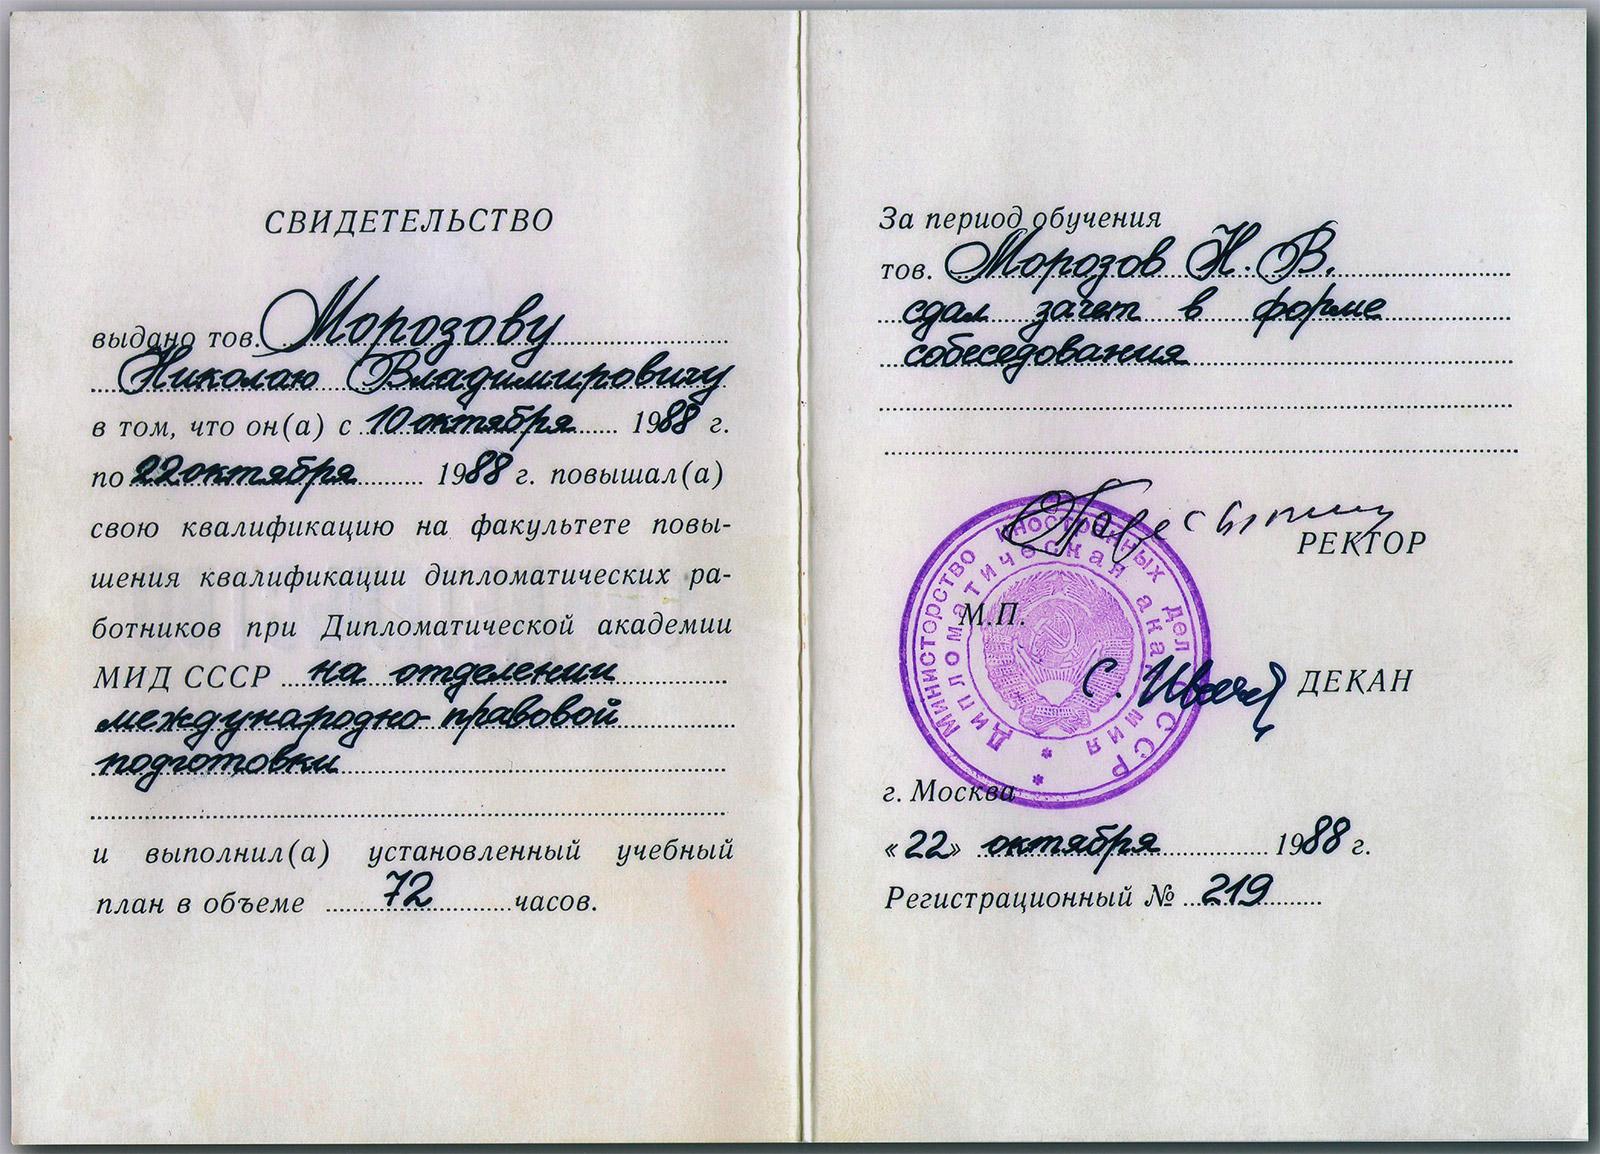 СВИДЕТЕЛЬСТВО
выдано тов. Морозову
Николаю Владимировичу
в том, что он(а) с 10 октября 1988 г.
по 22 октября 1988 г. повышал(а)
свою квалификацию на факультете повы-
шения квалификации дипломатических ра-
ботников при Дипломатической академии
МИД СССР на отделении
международно-правовой
подготовки
и выполнил(а) установленный учебный
план в объеме 72 часов.
За период обучения
тов. Морозов Н. В.
сдал зачет в форме
собеседования
РЕКТОР
Министерство иностранных дел СССР
Дипломатическая академия
М.П.
ДЕКАН
г. Москва
«22» октября 1988 г.
Регистрационный № 219